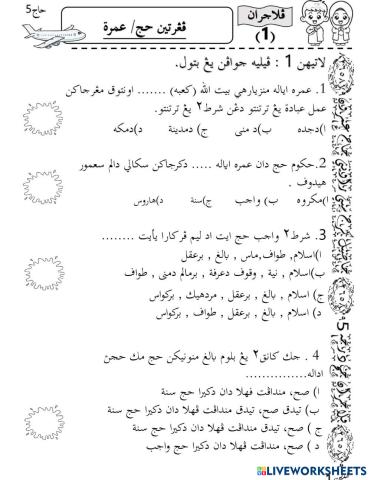 حاج5
ڤلاجران
(1)
ڤڠرتين حج/ عمرة
لاتيهن 1 : ڤيليه جواڤن يڠ بتول.
1. عمره اياله منزيارهي بيت الله (كعبه) ....... اونتوق مڠرجاكن
عمل عبادة يڠ ترتنتو دڠن شرط٢ يڠ ترتنتو.
ا)دجده ب)د منى ج) دمدينة د)دمكه
2.حكوم حج دان عمره اياله ..... دكرجاكن سكالي دالم سعمور
هيدوف .
ا)مكروه ب) واجب ج)سنة د)هاروس
3. شرط٢ واجب حج ايت اد ليم ڤركارا يأيت ........
ا)اسلام, طواف,ماس , بالغ , برعقل
ب)اسلام , نية , وقوف دعرفة , برمالم دمنى , طواف
ج) اسلام , بالغ , برعقل , مردهيك , بركواس
د) اسلام , بالغ , برعقل , طواف , بركواس
4 . جك كانق٢ يڠ بلوم بالغ منونيكن حج مك حجڽ
اداله...............
ا) صح، منداڤت ڤهلا دان دكيرا حج سنة
ب) تيدق صح، تيدق منداڤت ڤهلا دان دكيرا حج سنة
ج ) صح، تيدق منداڤت ڤهلا دان دكيرا حج سنة
د ) صح، منداڤت ڤهلا دان دكيرا حج واجب
LIVEWORKSHEETS